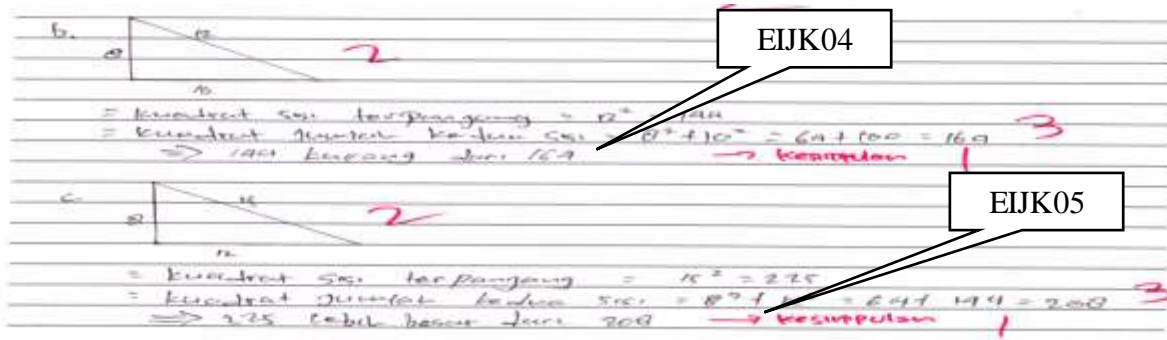 b. 12 2
EIJK04
8
10
= kuadrat sisi terpanjang = 12² = 144
= kuadrat jumlah kedua sisi = 8² + 10² = 64 + 100 = 164 3
⇒ 144 kurang dari 164 → kesimpulan 1
c. 15 2
EIJK05
8
12
= kuadrat sisi terpanjang = 15² = 225
= kuadrat jumlah kedua sisi = 8² + = 64 + 144 = 208 3
⇒ 225 lebih besar dari 208 → kesimpulan 1